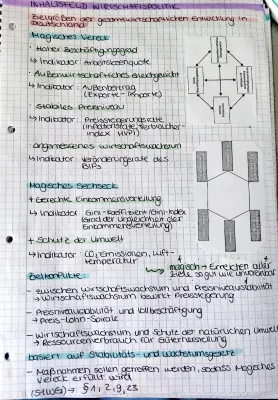 INHALTSFELD WIRTSCHAFTSPOLITIK
Zielgrößen der gesamtwirtschaftlichen Entwicklung in
Deutschland
Magisches Viereck
· Hoher Beschäftigungsgrad
↳ Indikator: Arbeitslosenquote
· Außenwirtschaftliches Gleichgewicht
↳ Indikator: Außenbeitrag
(Exporte - Importe)
· stabiles Preisniveau
↳ Indikator: Preissteigerungsrate
(Inflationsrate, Verbraucher-
index HVPI)
· angemessenes Wirtschaftswachstum
↳ Indikator: Veränderungsrate des
BIPs
Magisches Sechseck
+ Gerechte Einkommensverteilung
↳ Indikator: Gini-Koeffizient/Gini-Index
(Grad der Ungleichheit der
Einkommensverteilung)
+ Schutz der Umwelt
↳ Indikator: CO₂ Emissionen, Luft-
temperatur
magisch → Erreichen aller
Ziele so gut wie unmöglich
Zielkonflikte
- zwischen Wirtschaftswachstum und Preisniveaustabilität
→ Wirtschaftswachstum bewirkt Preissteigerung
- Preisniveaustabilität und Vollbeschäftigung
→ Preis-Lohn-Spirale
- Wirtschaftswachstum und Schutz der natürlichen Umwelt
→ Ressourcenverbrauch für Güterherstellung
basiert auf Stabilitäts- und Wachstumsgesetz
- Maßnahmen sollen getroffen werden, sodass Magisches
Viereck erfüllt wird
(StWG) → § 1, 2, 9, 23